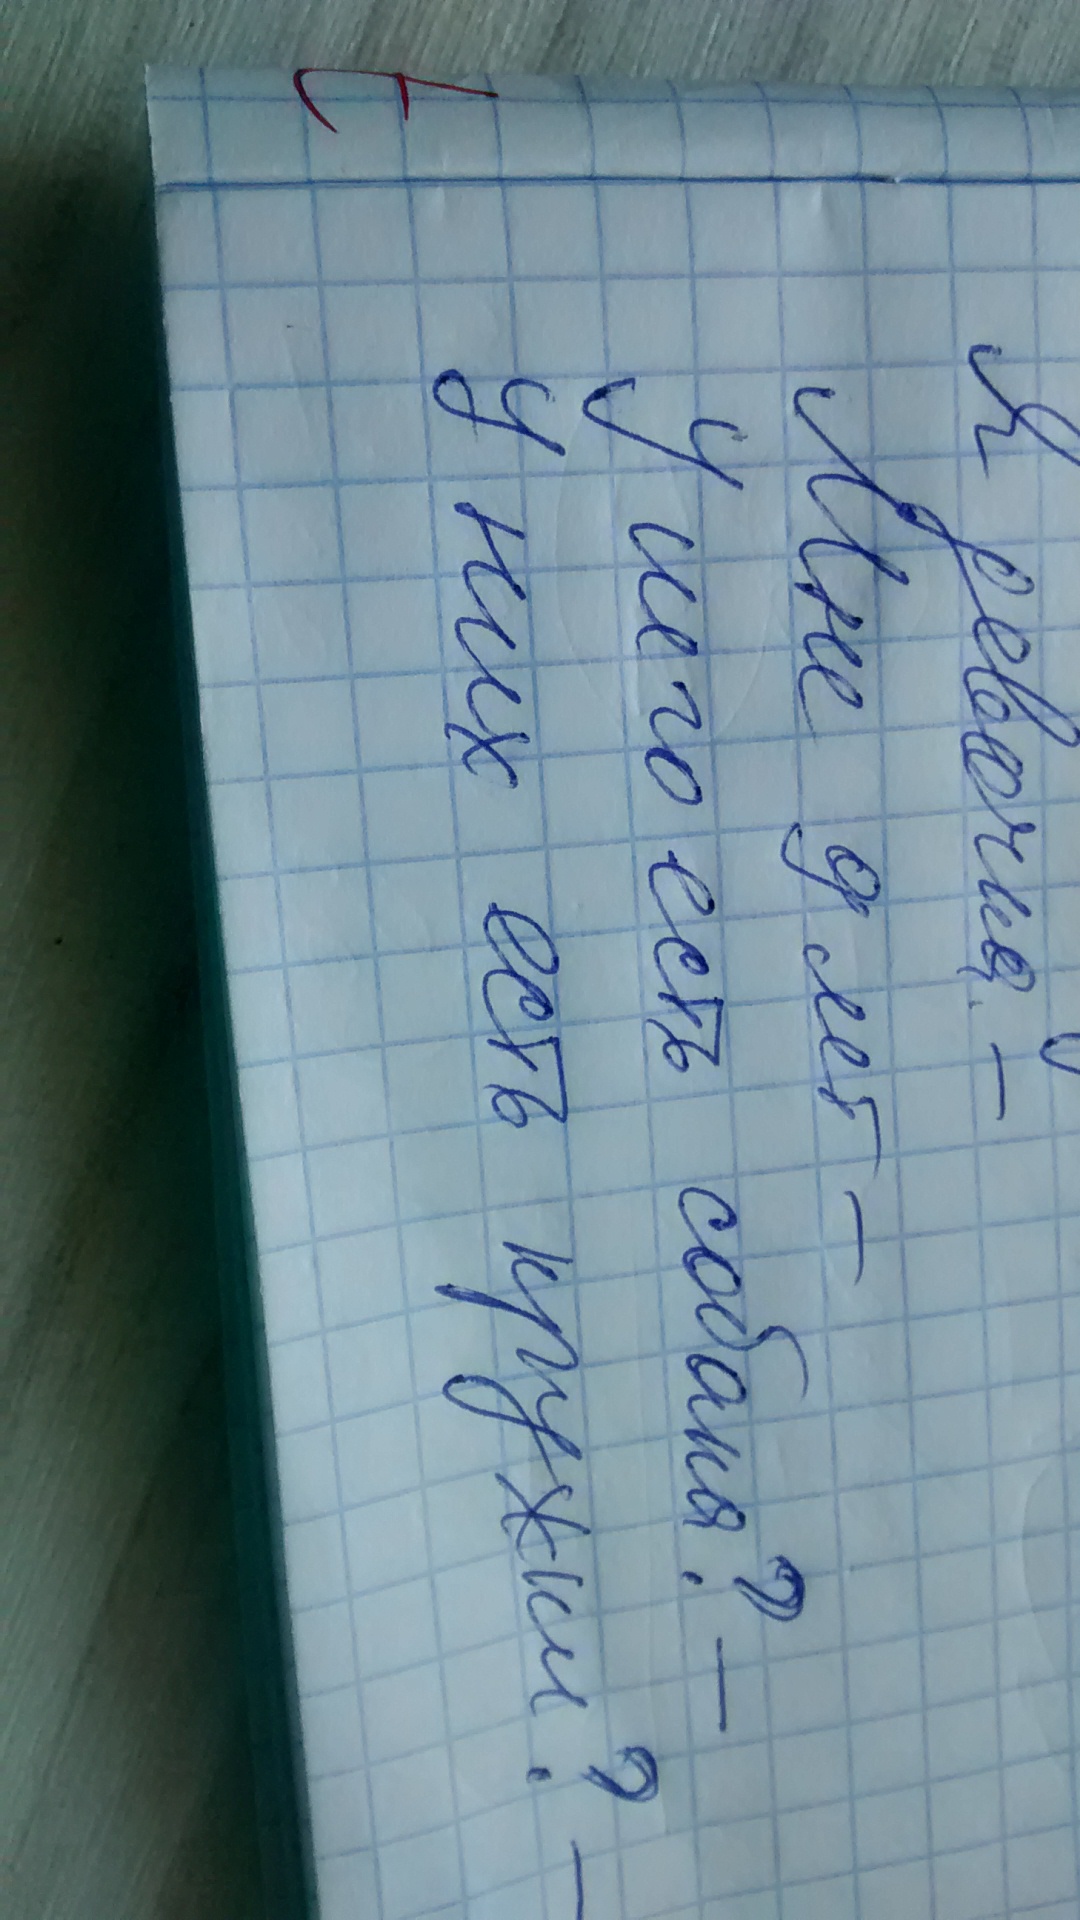 Я девочка. –
Мне 9 лет –
У него есть собака? –
У них есть кружки? –